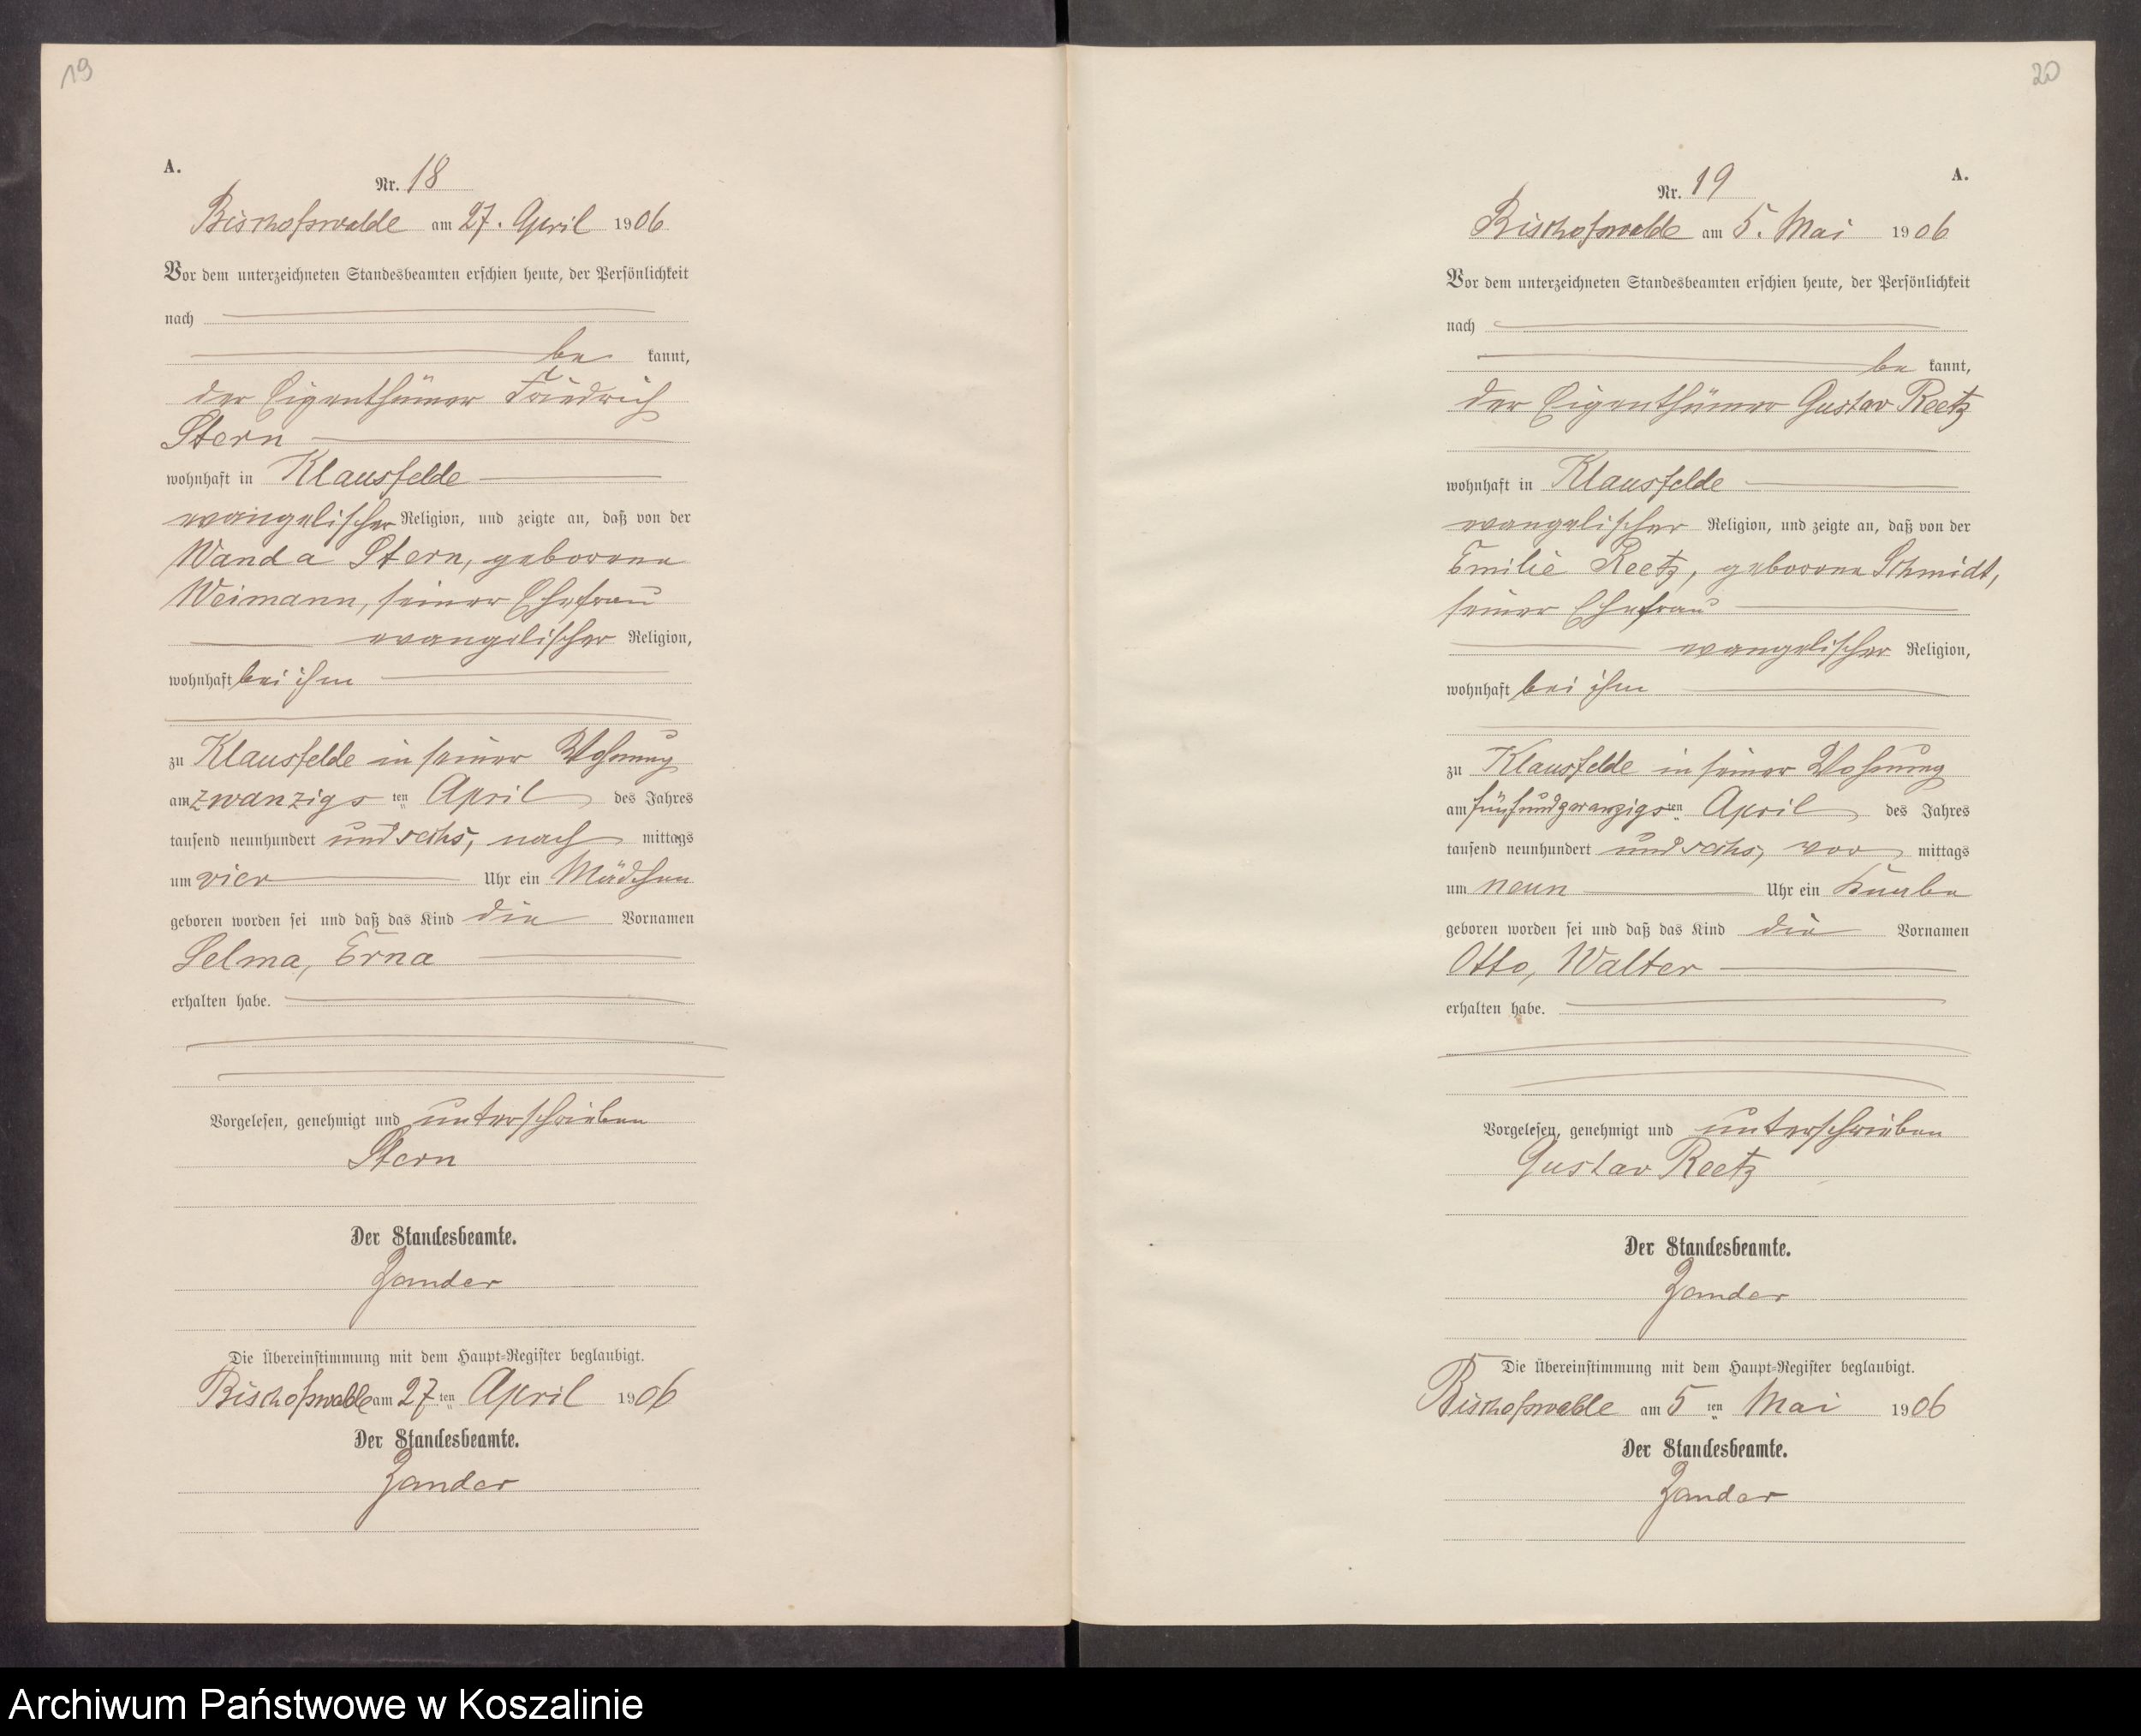 19
A.
Nr. 18
Bischofswalde am 27. April 1906
Vor dem unterzeichneten Standesbeamten erschien heute, der Persönlichkeit
nach
be kannt,
der Eigenthümer Friedrich
Stern
wohnhaft in Klausfelde
evangelischer Religion, und zeigte an, daß von der
Wanda Stern, geborene
Weimann, seiner Ehefrau
evangelischer Religion,
wohnhaft bei ihm
zu Klausfelde in seiner Wohnung
am zwanzigs ten April des Jahres
tausend neunhundert und sechs, nach mittags
um vier Uhr ein Mädchen
geboren worden sei und daß das Kind die Vornamen
Selma, Erna
erhalten habe.
Vorgelesen, genehmigt und unterschrieben
Stern
Der Standesbeamte.
Zander
Die Übereinstimmung mit dem Haupt-Register beglaubigt.
Bischofswalde am 27 ten April 1906
Der Standesbeamte.
Zander
20
A.
Nr. 19
Bischofswalde am 5. Mai 1906
Vor dem unterzeichneten Standesbeamten erschien heute, der Persönlichkeit
nach
be kannt,
der Eigenthümer Gustav Reetz
wohnhaft in Klausfelde
evangelischer Religion, und zeigte an, daß von der
Emilie Reetz, geborene Schmidt,
seiner Ehefrau
evangelischer Religion,
wohnhaft bei ihm
zu Klausfelde in seiner Wohnung
am fünfundzwanzigs ten April des Jahres
tausend neunhundert und sechs, vor mittags
um neun Uhr ein Knabe
geboren worden sei und daß das Kind die Vornamen
Otto, Walter
erhalten habe.
Vorgelesen, genehmigt und unterschrieben
Gustav Reetz
Der Standesbeamte.
Zander
Die Übereinstimmung mit dem Haupt-Register beglaubigt.
Bischofswalde am 5 ten Mai 1906
Der Standesbeamte.
Zander
Archiwum Państwowe w Koszalinie